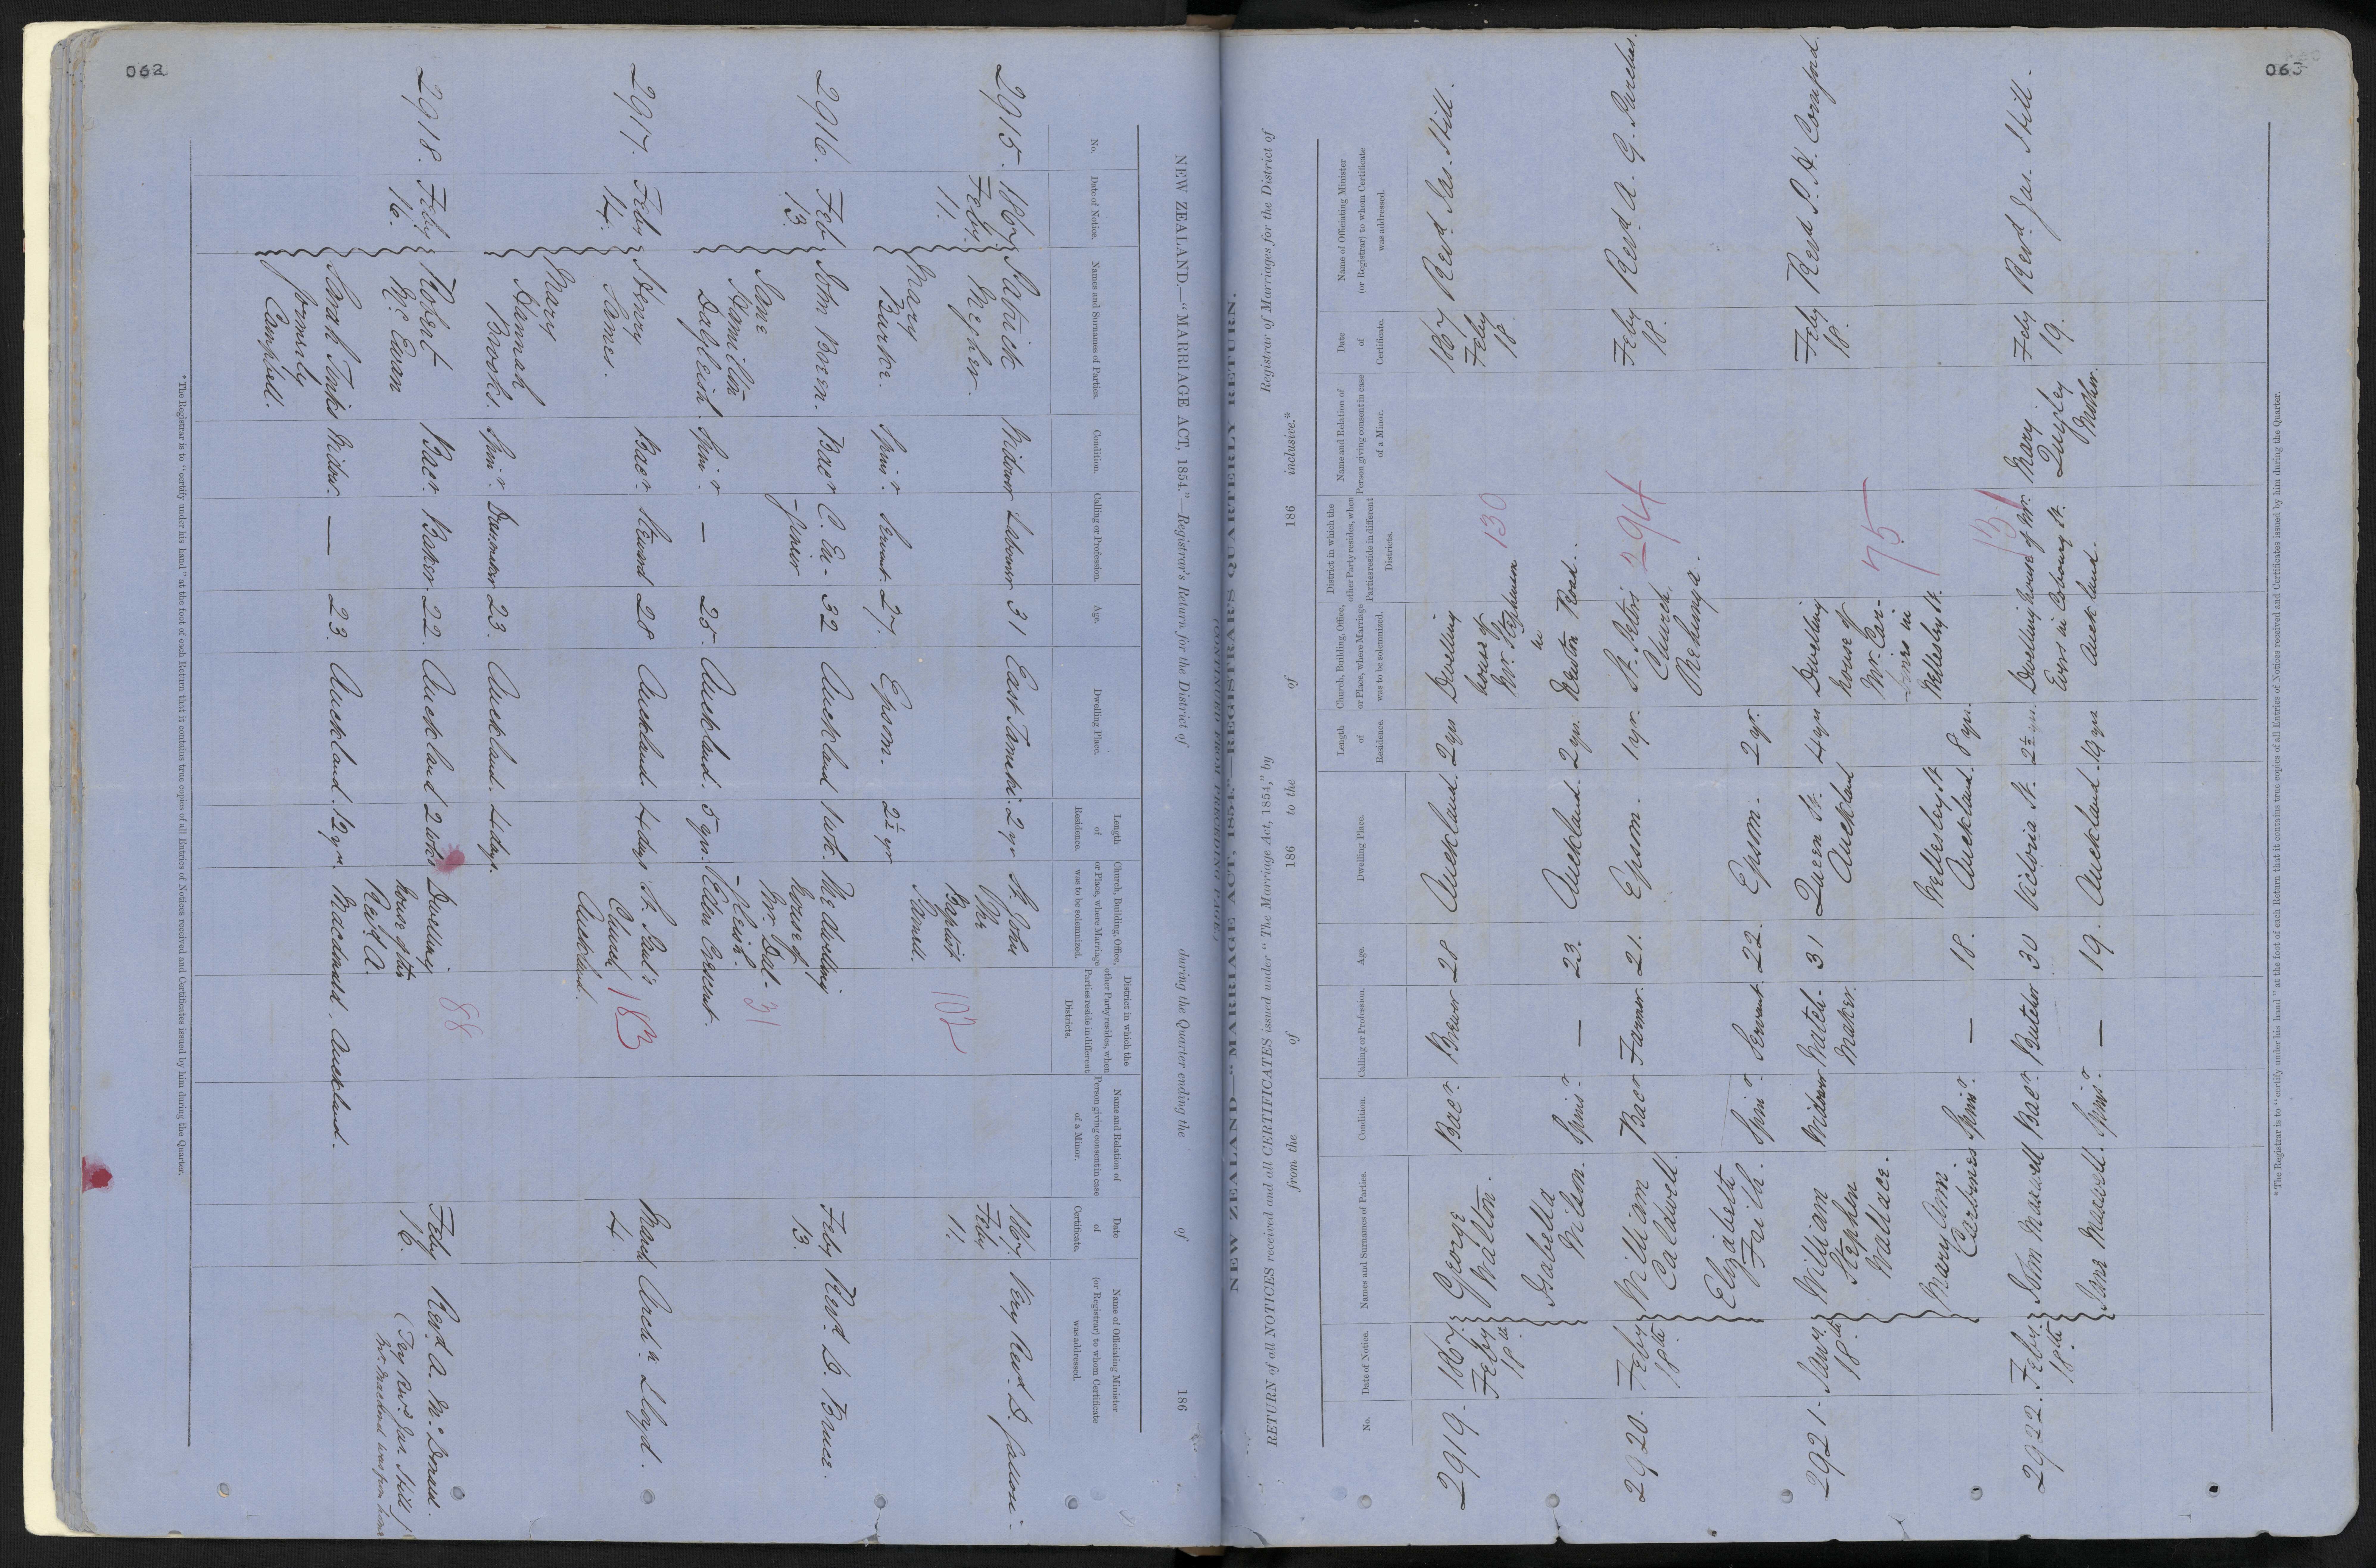 062
NEW ZEALAND.—"MARRIAGE ACT, 1854."—Registrar's Return for the District of during the Quarter ending the of 186
No.
Date of Notice.
Names and Surnames of Parties.
Condition.
Calling or Profession.
Age.
Dwelling Place.
Length of Residence.
Church, Building, Office, or Place, where Marriage was to be solemnized.
District in which the other Party resides, when Parties reside in different Districts.
Name and Relation of Person giving consent in case of a Minor.
Date of Certificate.
Name of Officiating Minister (or Registrar) to whom Certificate was addressed.
2915. 1867 Feby. 11. Patrick Megher. Widower Labourer 31 East Tamaki. 2 yr St. John the Baptist Parnell. 102 1867. Feby 11. Very Revd.
Mary Burke. Spinr. Servant. 27. Epsom. 2½ yr
2916. Feb 13. John Breen. Bacr C. 32 Auckland 1 wk. The dwelling house of Mr. Dalgleish. Eden Crescent. 31 Feby 13. Revd. D. Bruce.
Jane Hamilton Dalgleish. Spinr — 25. Auckland. 5 yrs.
2917. Feby 14. Henry James. Bacr. Steward 28 Auckland. 4 days St. Paul's Church Auckland. 183 March 4. Archn. Lloyd.
Mary Hannah Brooks. Spinr. Dressmaker 23. Auckland. 4 days.
2918. Feby 16. Robert McEwan Bacr. Baker. 22. Auckland 2 wks Dwelling house of the Revd. A. Macdonald, Auckland. 88 Feby 16. Revd. A. McDonald.
(Revd. Jas. Hill)
was from home
Sarah Jenkes formerly Campbell. Widow. — 23. Auckland. 12 yr.
*The Registrar is to "certify under his hand" at the foot of each Return that it contains true copies of all Entries of Notices received and Certificates issued by him during the Quarter.
063
NEW ZEALAND—"MARRIAGE ACT, 1854."—REGISTRAR'S QUARTERLY RETURN.
RETURN of all NOTICES received and all CERTIFICATES issued under "The Marriage Act, 1854," by Registrar of Marriages for the District of
from the of 186 to the of 186 inclusive.*
No.
Date of Notice.
Names and Surnames of Parties.
Condition.
Calling or Profession.
Age.
Dwelling Place.
Length of Residence.
Church, Building, Office, or Place, where Marriage was to be solemnized.
District in which the other Party resides, when Parties reside in different Districts.
Name and Relation of Person giving consent in case of a Minor.
Date of Certificate.
Name of Officiating Minister (or Registrar) to whom Certificate was addressed.
2919. 1867. Feby 18th George Walton. Bacr. Brewer 28 Auckland. 2 yrs Dwelling house of Mr. Stephenson in Newton Road. 130 1867 Feby 18. Revd. Jas. Hill.
Isabella Wilson. Spinr — 23. Auckland. 2 yr.
2920. Feby 18th William Caldwell. Bacr Farmer. 21. Epsom. 1 yr. St. Peters Church, Onehunga. 294 Feby 18. Revd. A. G. Purchas.
Elizabeth Faith. Spinr. Servant. 22. Epsom. 2 yr.
2921. 18th William Stephen Wallace. Widower Watch-maker. 31 Queen St. Auckland 4 yrs Dwelling house of Mr. in Wellesley St. 75 Feby 18. Revd P. H. Cornford.
Mary Ann Carbines Spinr. — 18. Wellesley St Auckland. 8 yrs.
2922. Feby. 18th John Maxwell Bacr. 30 Victoria St. Dwelling house of Mr. Evers in Cobourg St. Auckland. 131 Mary Quigley Mother. Feby 19. Revd. Jas. Hill.
Jane Maxwell. Spinr. — 19. Auckland.
*The Registrar is to "certify under his hand" at the foot of each Return that it contains true copies of all Entries of Notices received and Certificates issued by him during the Quarter.